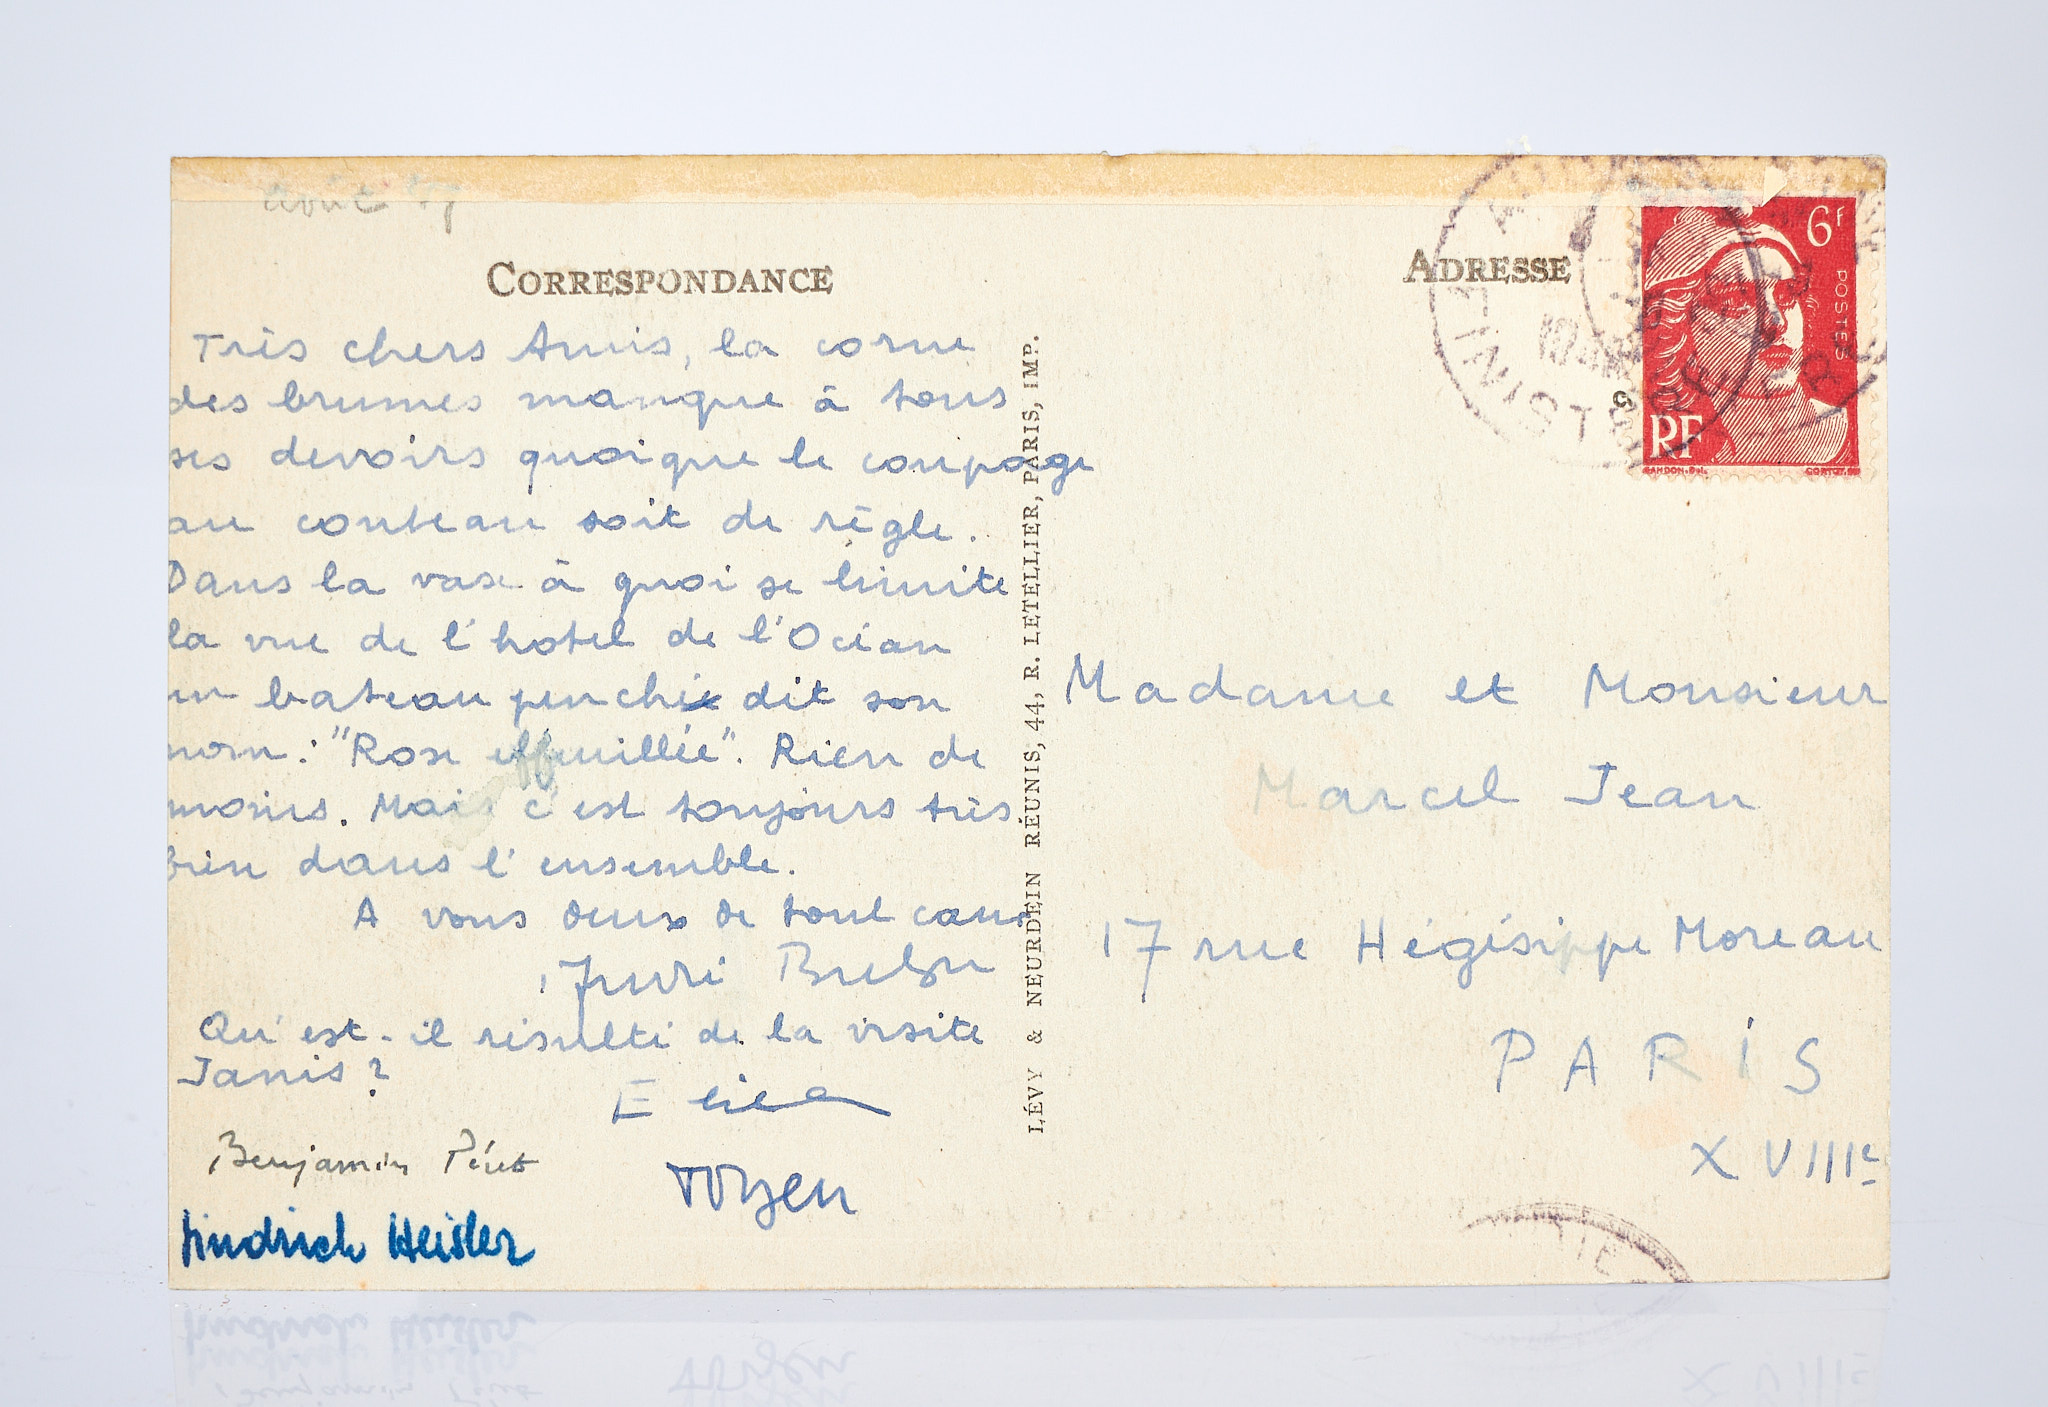 août
CORRESPONDANCE
Très chers Amis, la corne
des brumes manque à tous
ses devoirs quoique le coupage
au couteau soit de règle.
Dans la vase à quoi se limite
la vue de l'hotel de l'Océan
un bateau penché dit son
nom : "Rose effeuillée". Rien de
moins. Mais c'est toujours très
bien dans l'ensemble.
A vous deux de tout cœur
Qu'est-il résulté de la visite
Janis ?
Elisa
Benjamin Péret
Toyen
Jindrich Heisler
LÉVY & NEURDEIN RÉUNIS, 44, R. LETELLIER, PARIS, IMP.
ADRESSE
6F
POSTES
RF
GANDON
CORTOT
FINISTÈRE
Madame et Monsieur
Marcel Jean
17 rue Hégésippe Moreau
PARIS
XVIIIe